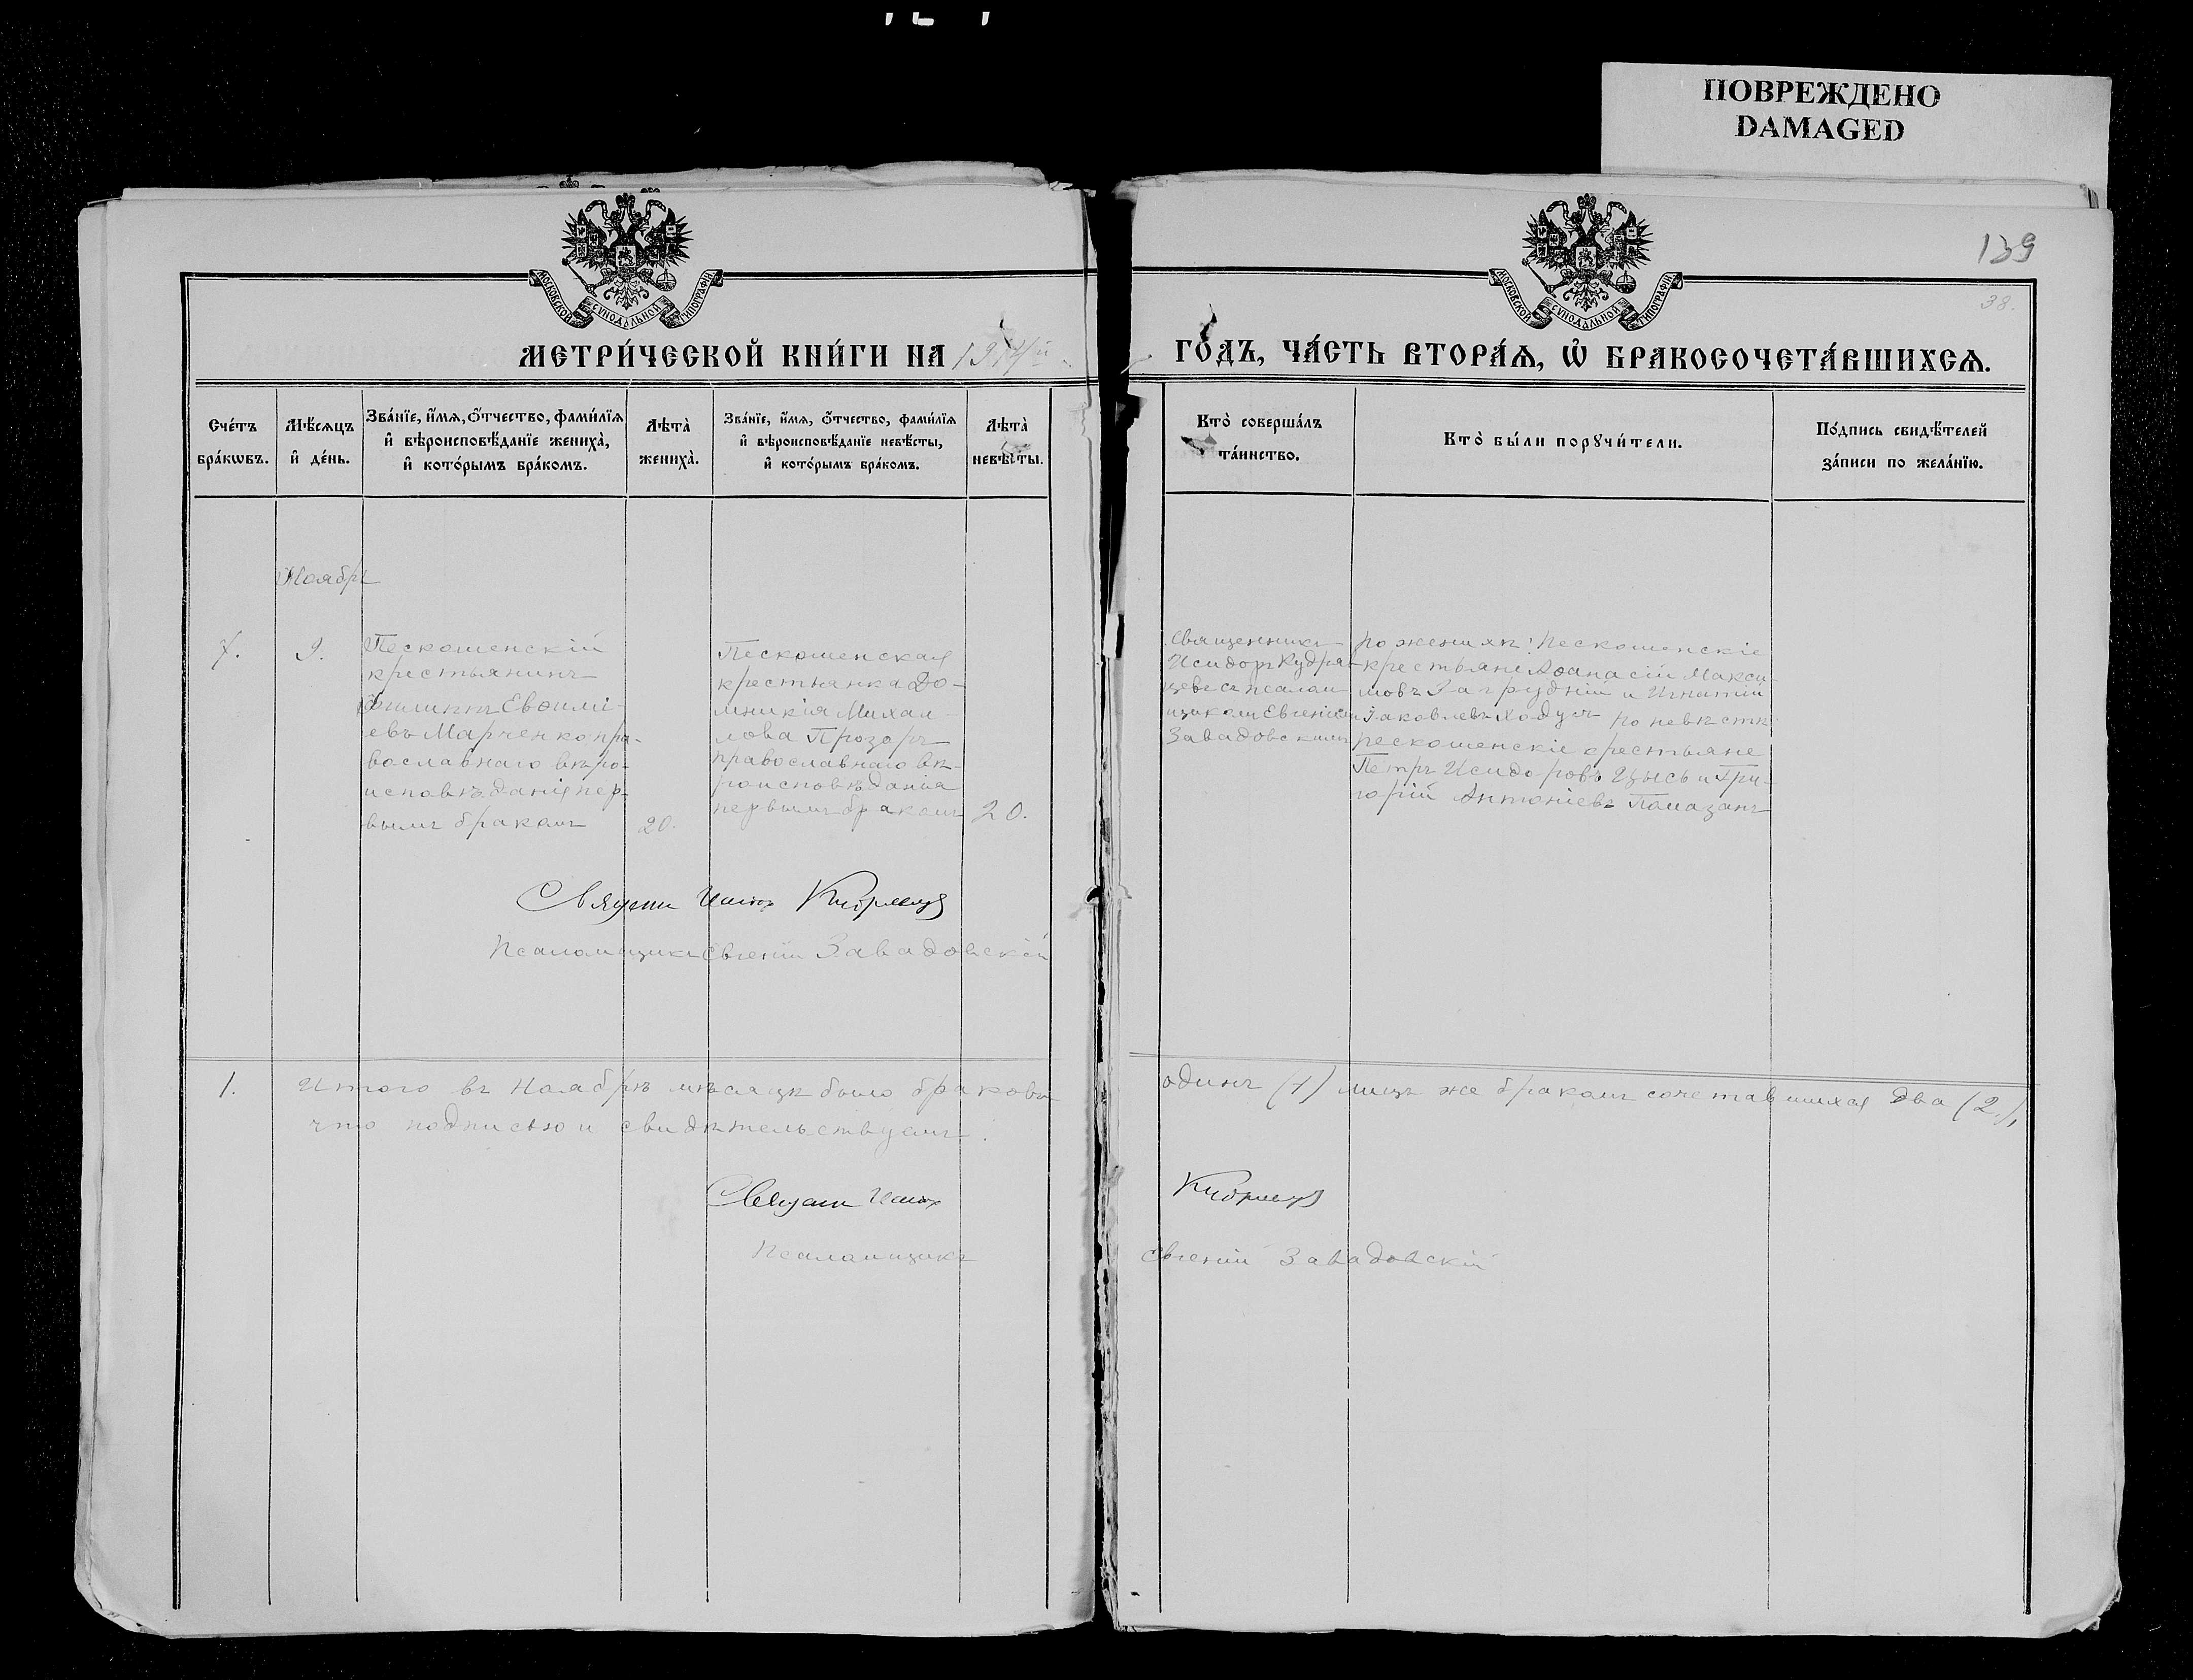 ПОВРЕЖДЕНО
DAMAGED
139
38.
МОСКОВСКОЙ СѴНОДАЛЬНОЙ ТИПОГРАФІИ
МОСКОВСКОЙ СѴНОДАЛЬНОЙ ТИПОГРАФІИ
МЕТРИ́ЧЕСКОЙ КНИ́ГИ НА
ГО́ДЪ, ЧА́СТЬ ВТОРА́Ѧ, Ѽ БРАКОСОЧЕТА́ВШИХСѦ.
Сче́тъ бра́кѡвъ.
Мѣ́сѧцъ и҆ де́нь.
Зва́нїе, и҆́мѧ, о҆́тчество, фами́лїѧ и҆ вѣроисповѣ́данїе жениха̀, и҆ кото́рымъ бра́комъ.
Лѣта̀ жениха̀.
Зва́нїе, и҆́мѧ, о҆́тчество, фами́лїѧ и҆ вѣроисповѣ́данїе невѣ́сты, и҆ кото́рымъ бра́комъ.
Лѣта̀ невѣ́сты.
Кто̀ соверша́лъ та́инство.
Кто̀ бы́ли порꙋчи́тели.
По́дпись свидѣ́телей за́писи по жела́нїю.
Ноябрь
7.
9.
Пескошенскій
крестьянинъ
Филиппъ Евѳимі-
евъ Марченко пра-
вославнаго вѣро-
исповѣданія пер-
вымъ бракомъ
20.
Пескошенская
крестьянка До-
мникія Михаи-
лова Прозоръ
православнаго вѣ-
роисповѣданія
первымъ бракомъ
20.
Священникъ
Исидоръ Кудря-
цевъ съ псалом-
щикомъ Евгеніемъ
Завадовскимъ
по женихѣ: пескошенскіе
крестьяне Аѳанасій Макси-
мовъ Загрудній и Игнатій
Іаковлевъ Ходусъ по невѣстѣ:
пескошенскіе крестьяне
Петръ Исидоровъ Цысь и Гри-
горій Антоніевъ Помазанъ
Священ Исидоръ Кудрявцевъ
Псаломщикъ Евгеній Завадовскій
1.
Итого въ Ноябрѣ мѣсяцѣ было браковъ
одинъ (1) лицъ же бракомъ сочетавшихся два (2),
что подписью и свидѣтельствуемъ.
Священ Исидоръ
Кудрявцевъ
Псаломщикъ
Евгеній Завадовскій